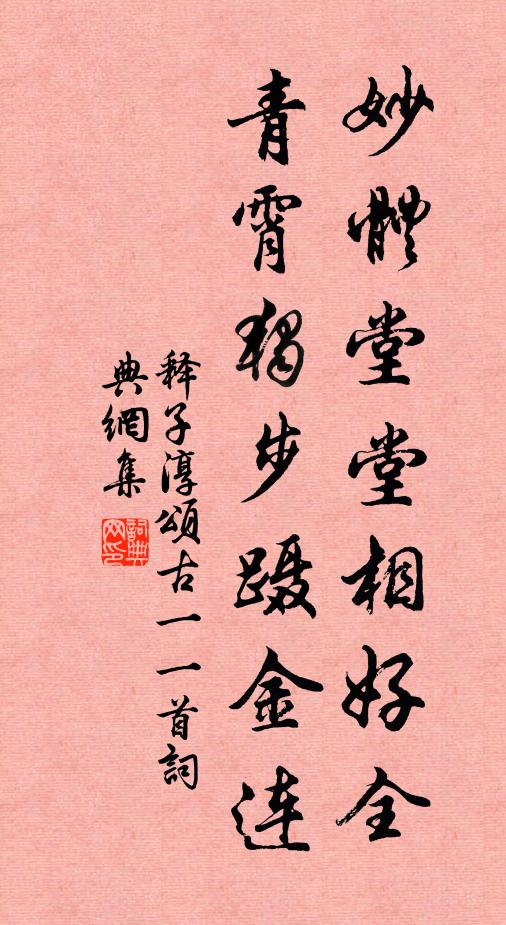 妙體堂堂相好全
青霄獨步蹑金连
释子淳頌古一一首詞
典網集
詞典网印